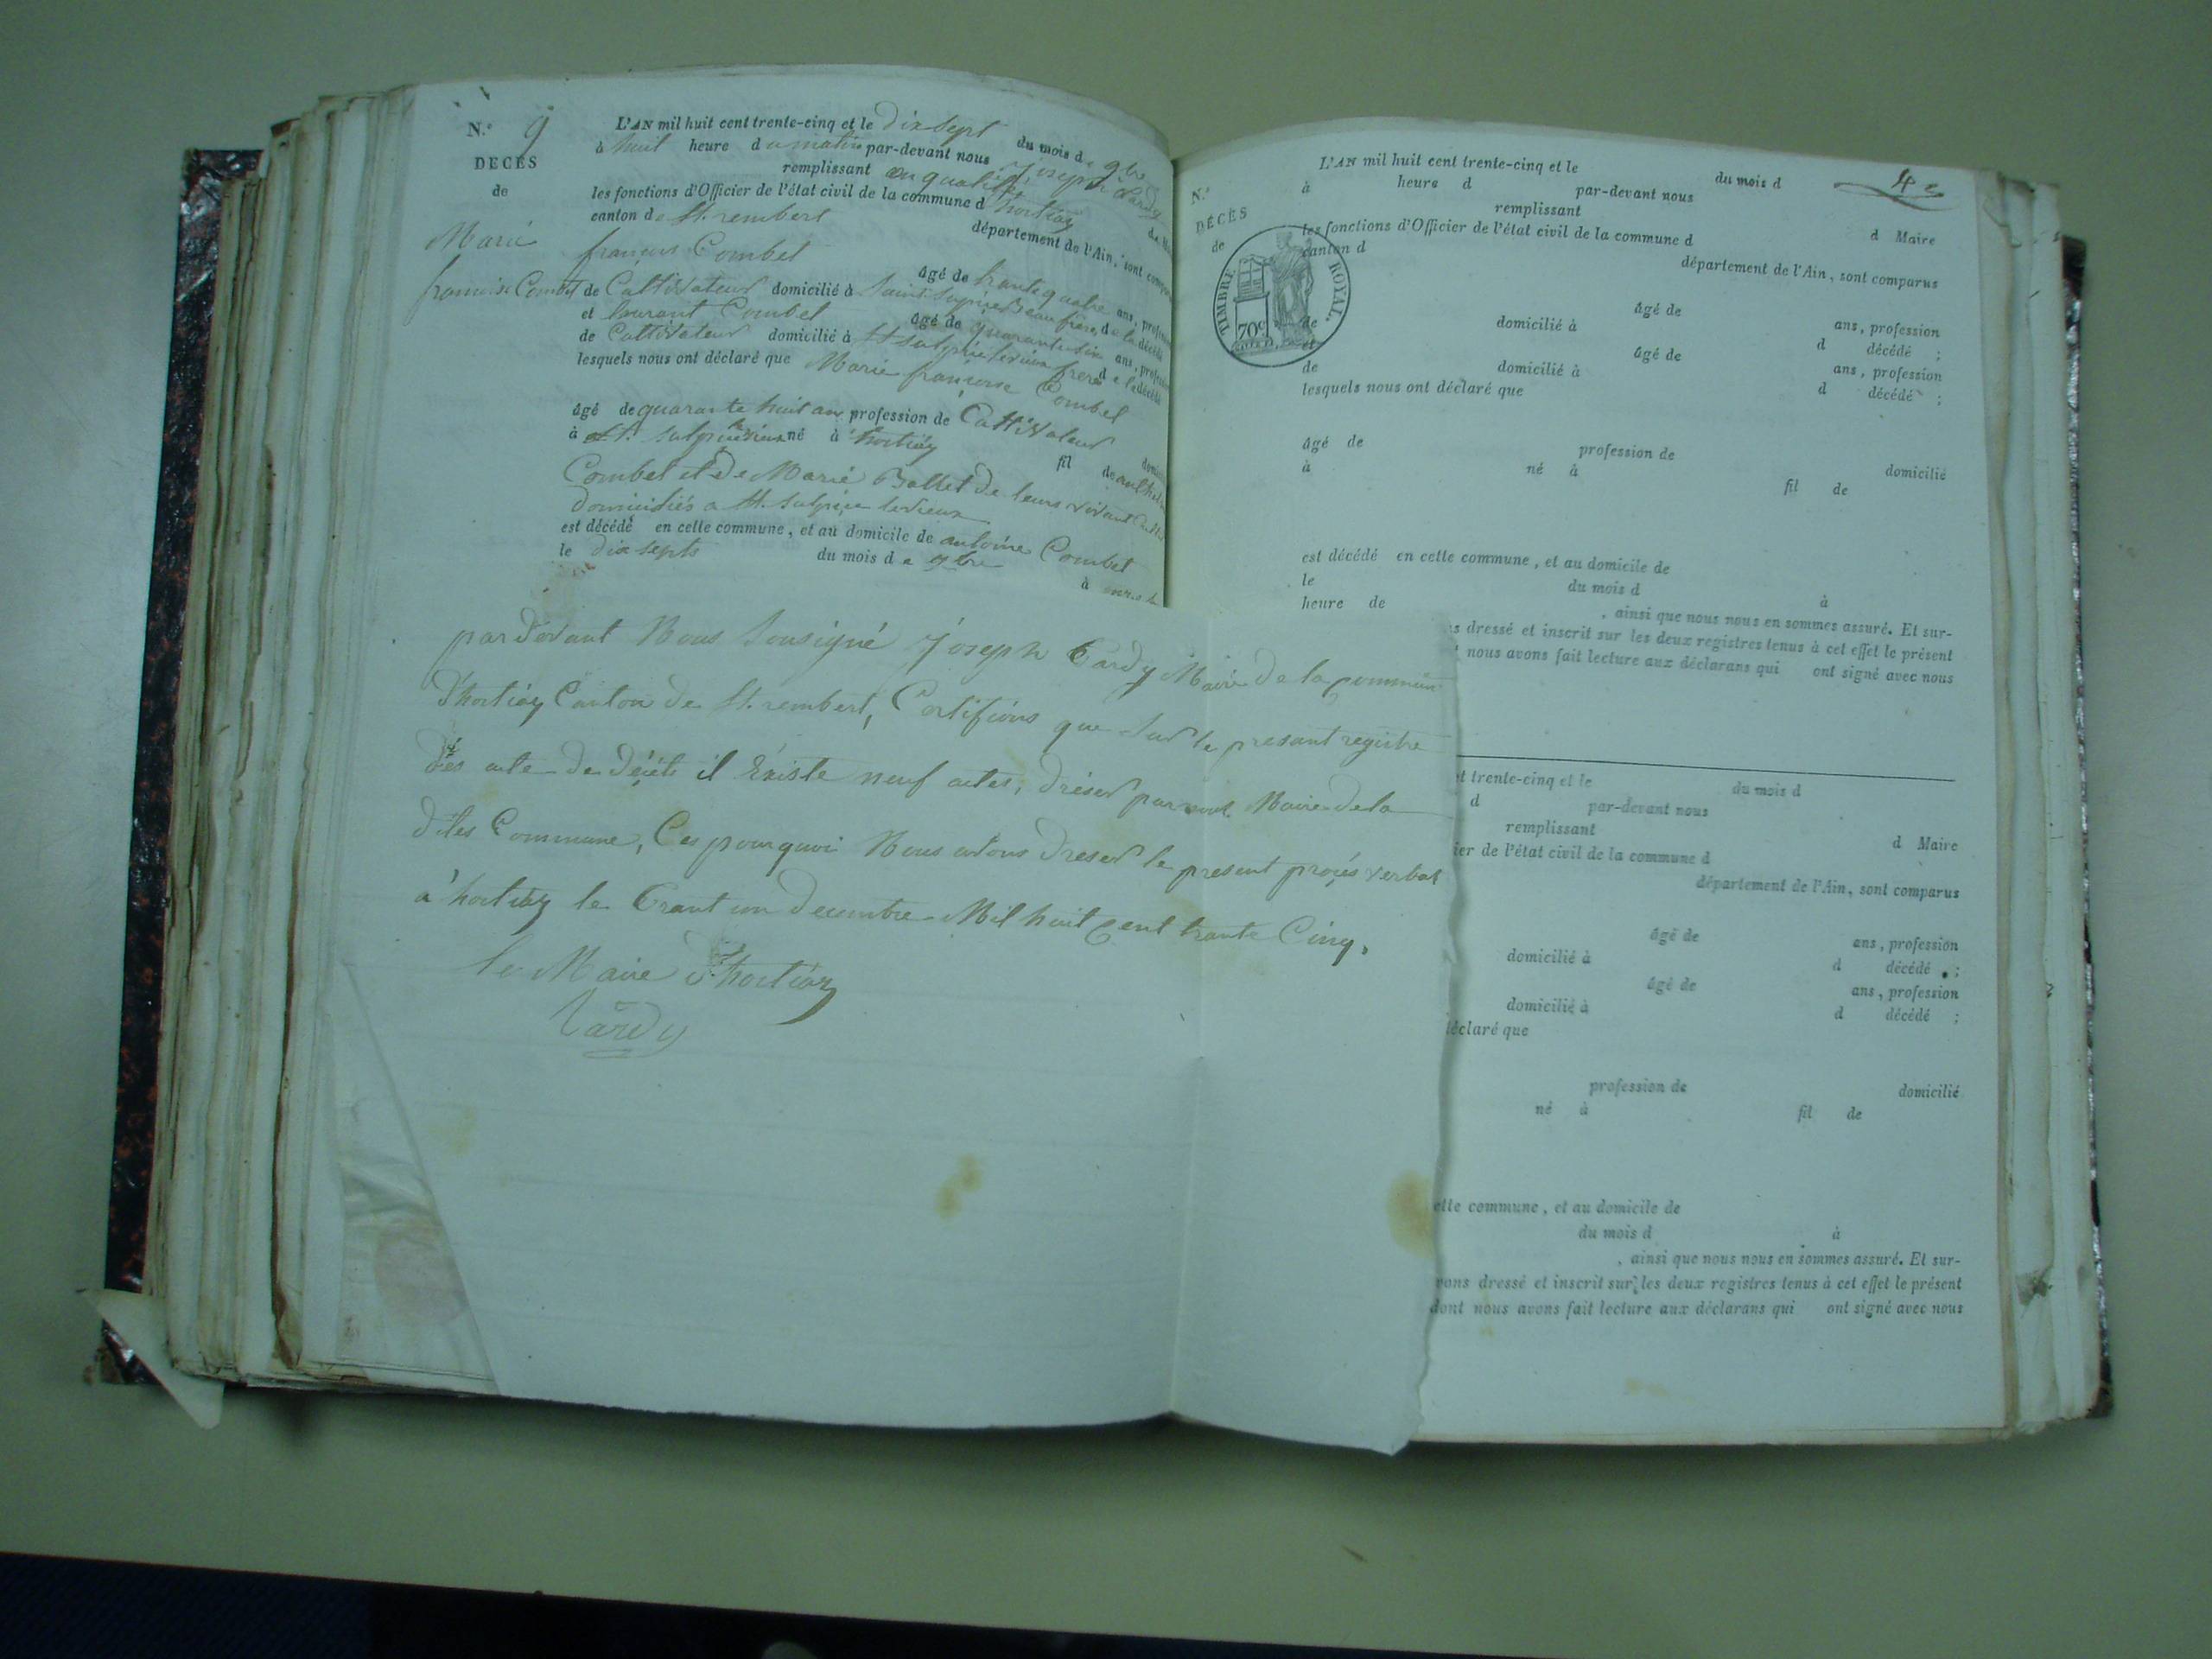 N.° 9
DÉCÈS
de
Marie
francoise Combet
L'AN mil huit cent trente-cinq et le dix sept du mois de 9bre
à huit heure du matin par-devant nous Joseph Tardy
remplissant en qualité de Maire
les fonctions d'Officier de l'état civil de la commune d'hortiay
canton de St. rembert département de l'Ain, sont comparus
françois Combet âgé de trante quatre ans, profession
de Cultivateur domicilié à Saint Sulpice Beau frère de la décédé
et laurant Combet âgé de quarante six ans, profession
de Cultivateur domicilié à St Sulpice levieux frere de la décédé
lesquels nous ont déclaré que Marie francoise Combet
âgé de quarante huit ans profession de Cultivateur
à St. Sulpice levieux né à hortiay fil de
Combet et de Marie Ballet de leurs vivant
domiciliés a St. Sulpice levieux
est décédé en cette commune, et au domicile de antoine Combet
le dix septs du mois de 9bre à
pardevant Nous Sousigné Joseph Tardy Maire de la commune
d'hortiay Canton de St. rembert, Certifions que Sur le presant registre
des acte de décès il Existe neuf actes, dréser par nous Maire de la
dites Commune, Ces pourquoi Nous avons dreser le present procés verbal
a hortiay le trant un decembre Mil huit cent trante Cinq,
le Maire d'hortiay
Tardy
4e
N.°
DÉCÈS
de
TIMBRE ROYAL.
70c
L'AN mil huit cent trente-cinq et le du mois d
à heure d par-devant nous
remplissant d Maire
les fonctions d'Officier de l'état civil de la commune d
canton d département de l'Ain, sont comparus
âgé de ans, profession
de domicilié à d décédé ;
et âgé de ans, profession
de domicilié à d décédé ;
lesquels nous ont déclaré que
âgé de profession de domicilié
à né à fil de
est décédé en cette commune, et au domicile de
le du mois d à
heure de , ainsi que nous nous en sommes assuré. Et sur-
s dressé et inscrit sur les deux registres tenus à cet effet le présent
nous avons fait lecture aux déclarans qui ont signé avec nous
t trente-cinq et le du mois d
d par-devant nous
remplissant d Maire
ier de l'état civil de la commune d
département de l'Ain, sont comparus
âgé de ans, profession
domicilié à d décédé ;
âgé de ans, profession
domicilié à d décédé ;
déclaré que
profession de domicilié
né à fil de
ette commune, et au domicile de
du mois d à
, ainsi que nous nous en sommes assuré. Et sur-
vons dressé et inscrit sur les deux registres tenus à cet effet le présent
dont nous avons fait lecture aux déclarans qui ont signé avec nous